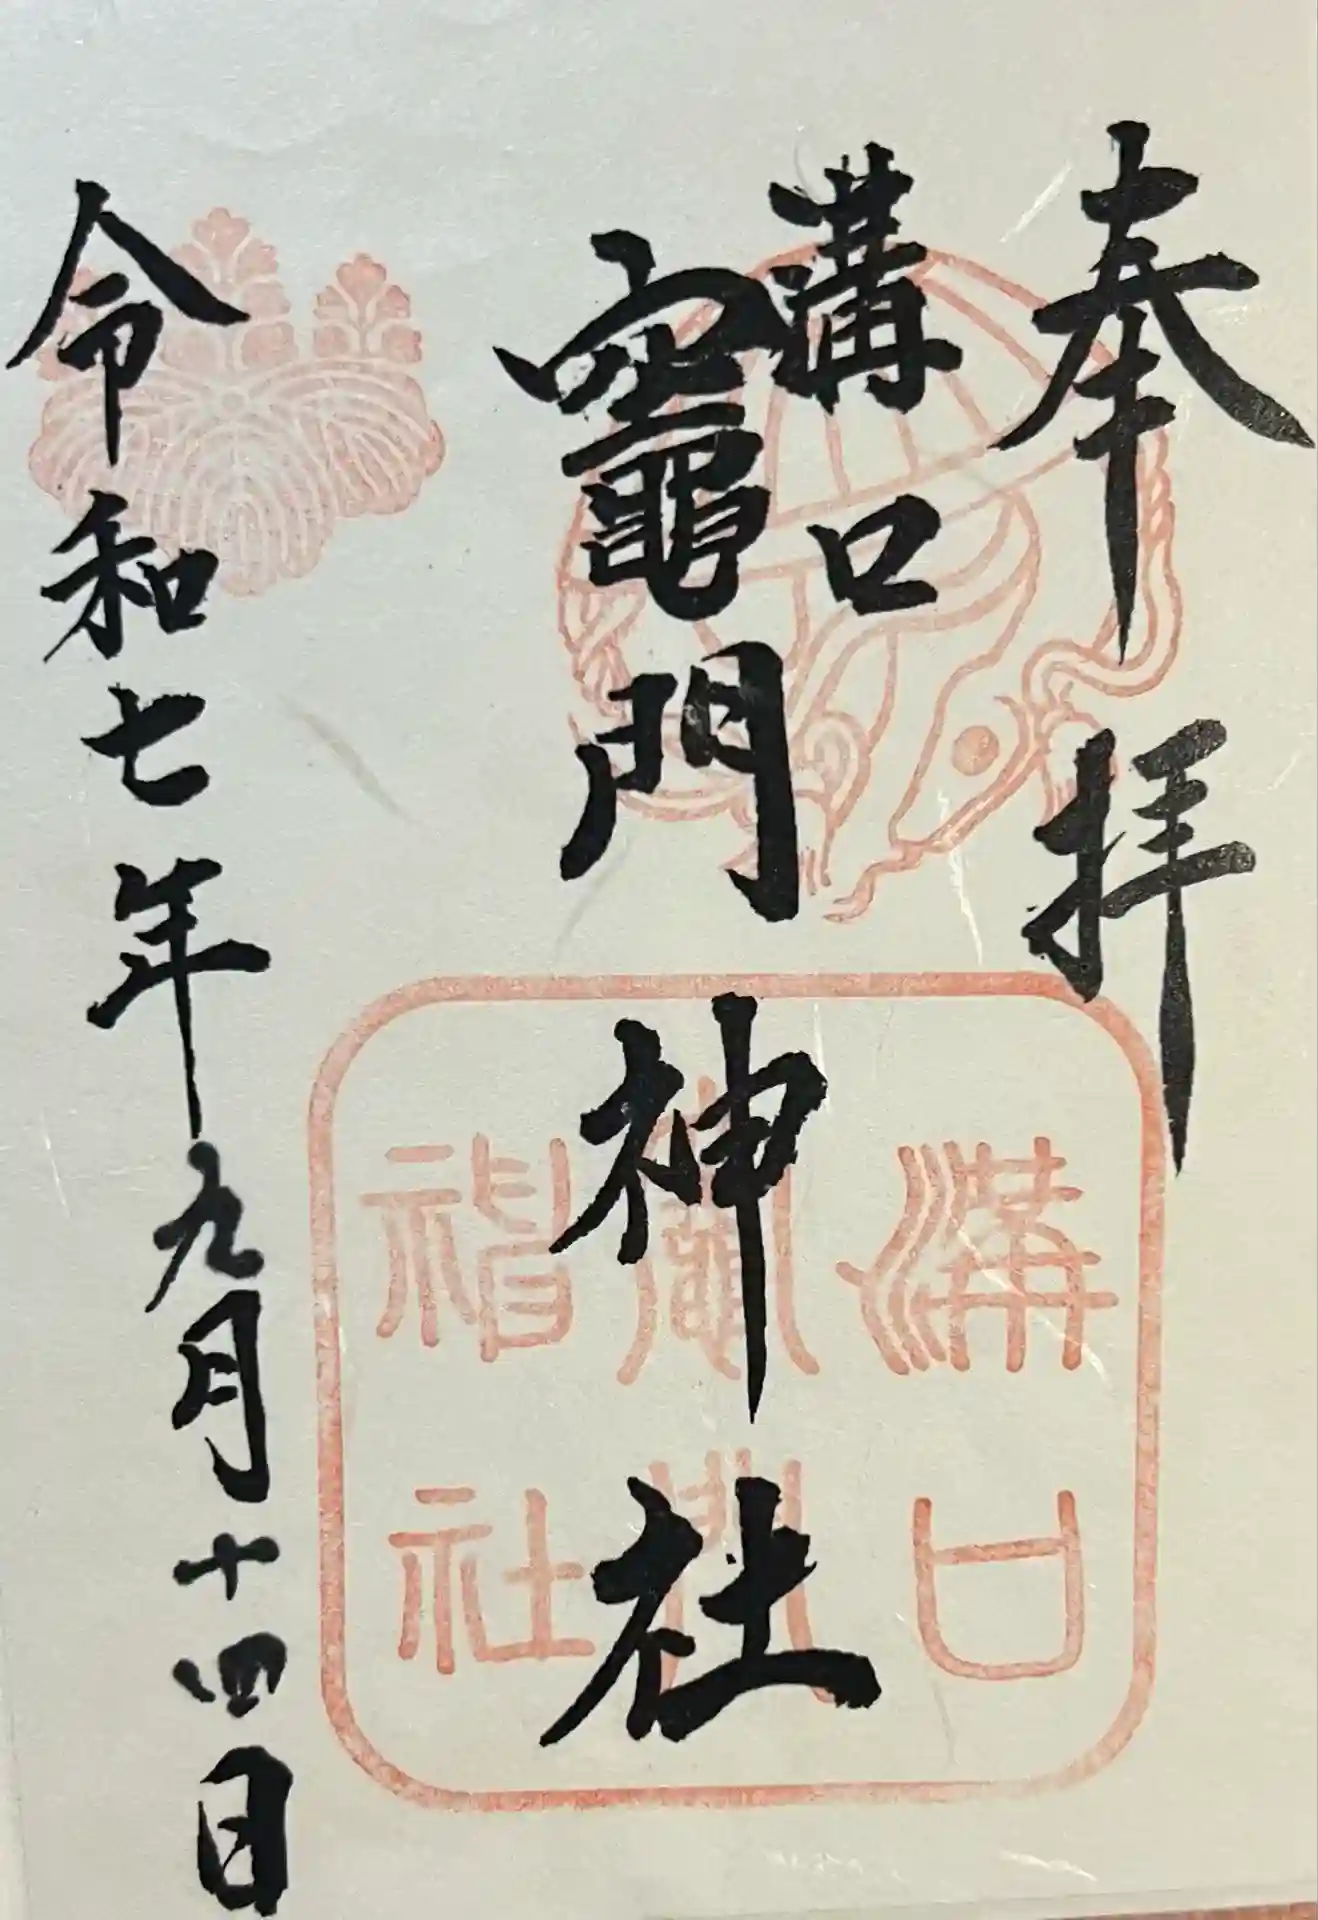 奉拝
溝口
竈門神社
令和七年九月十四日
溝口
竈門
神社